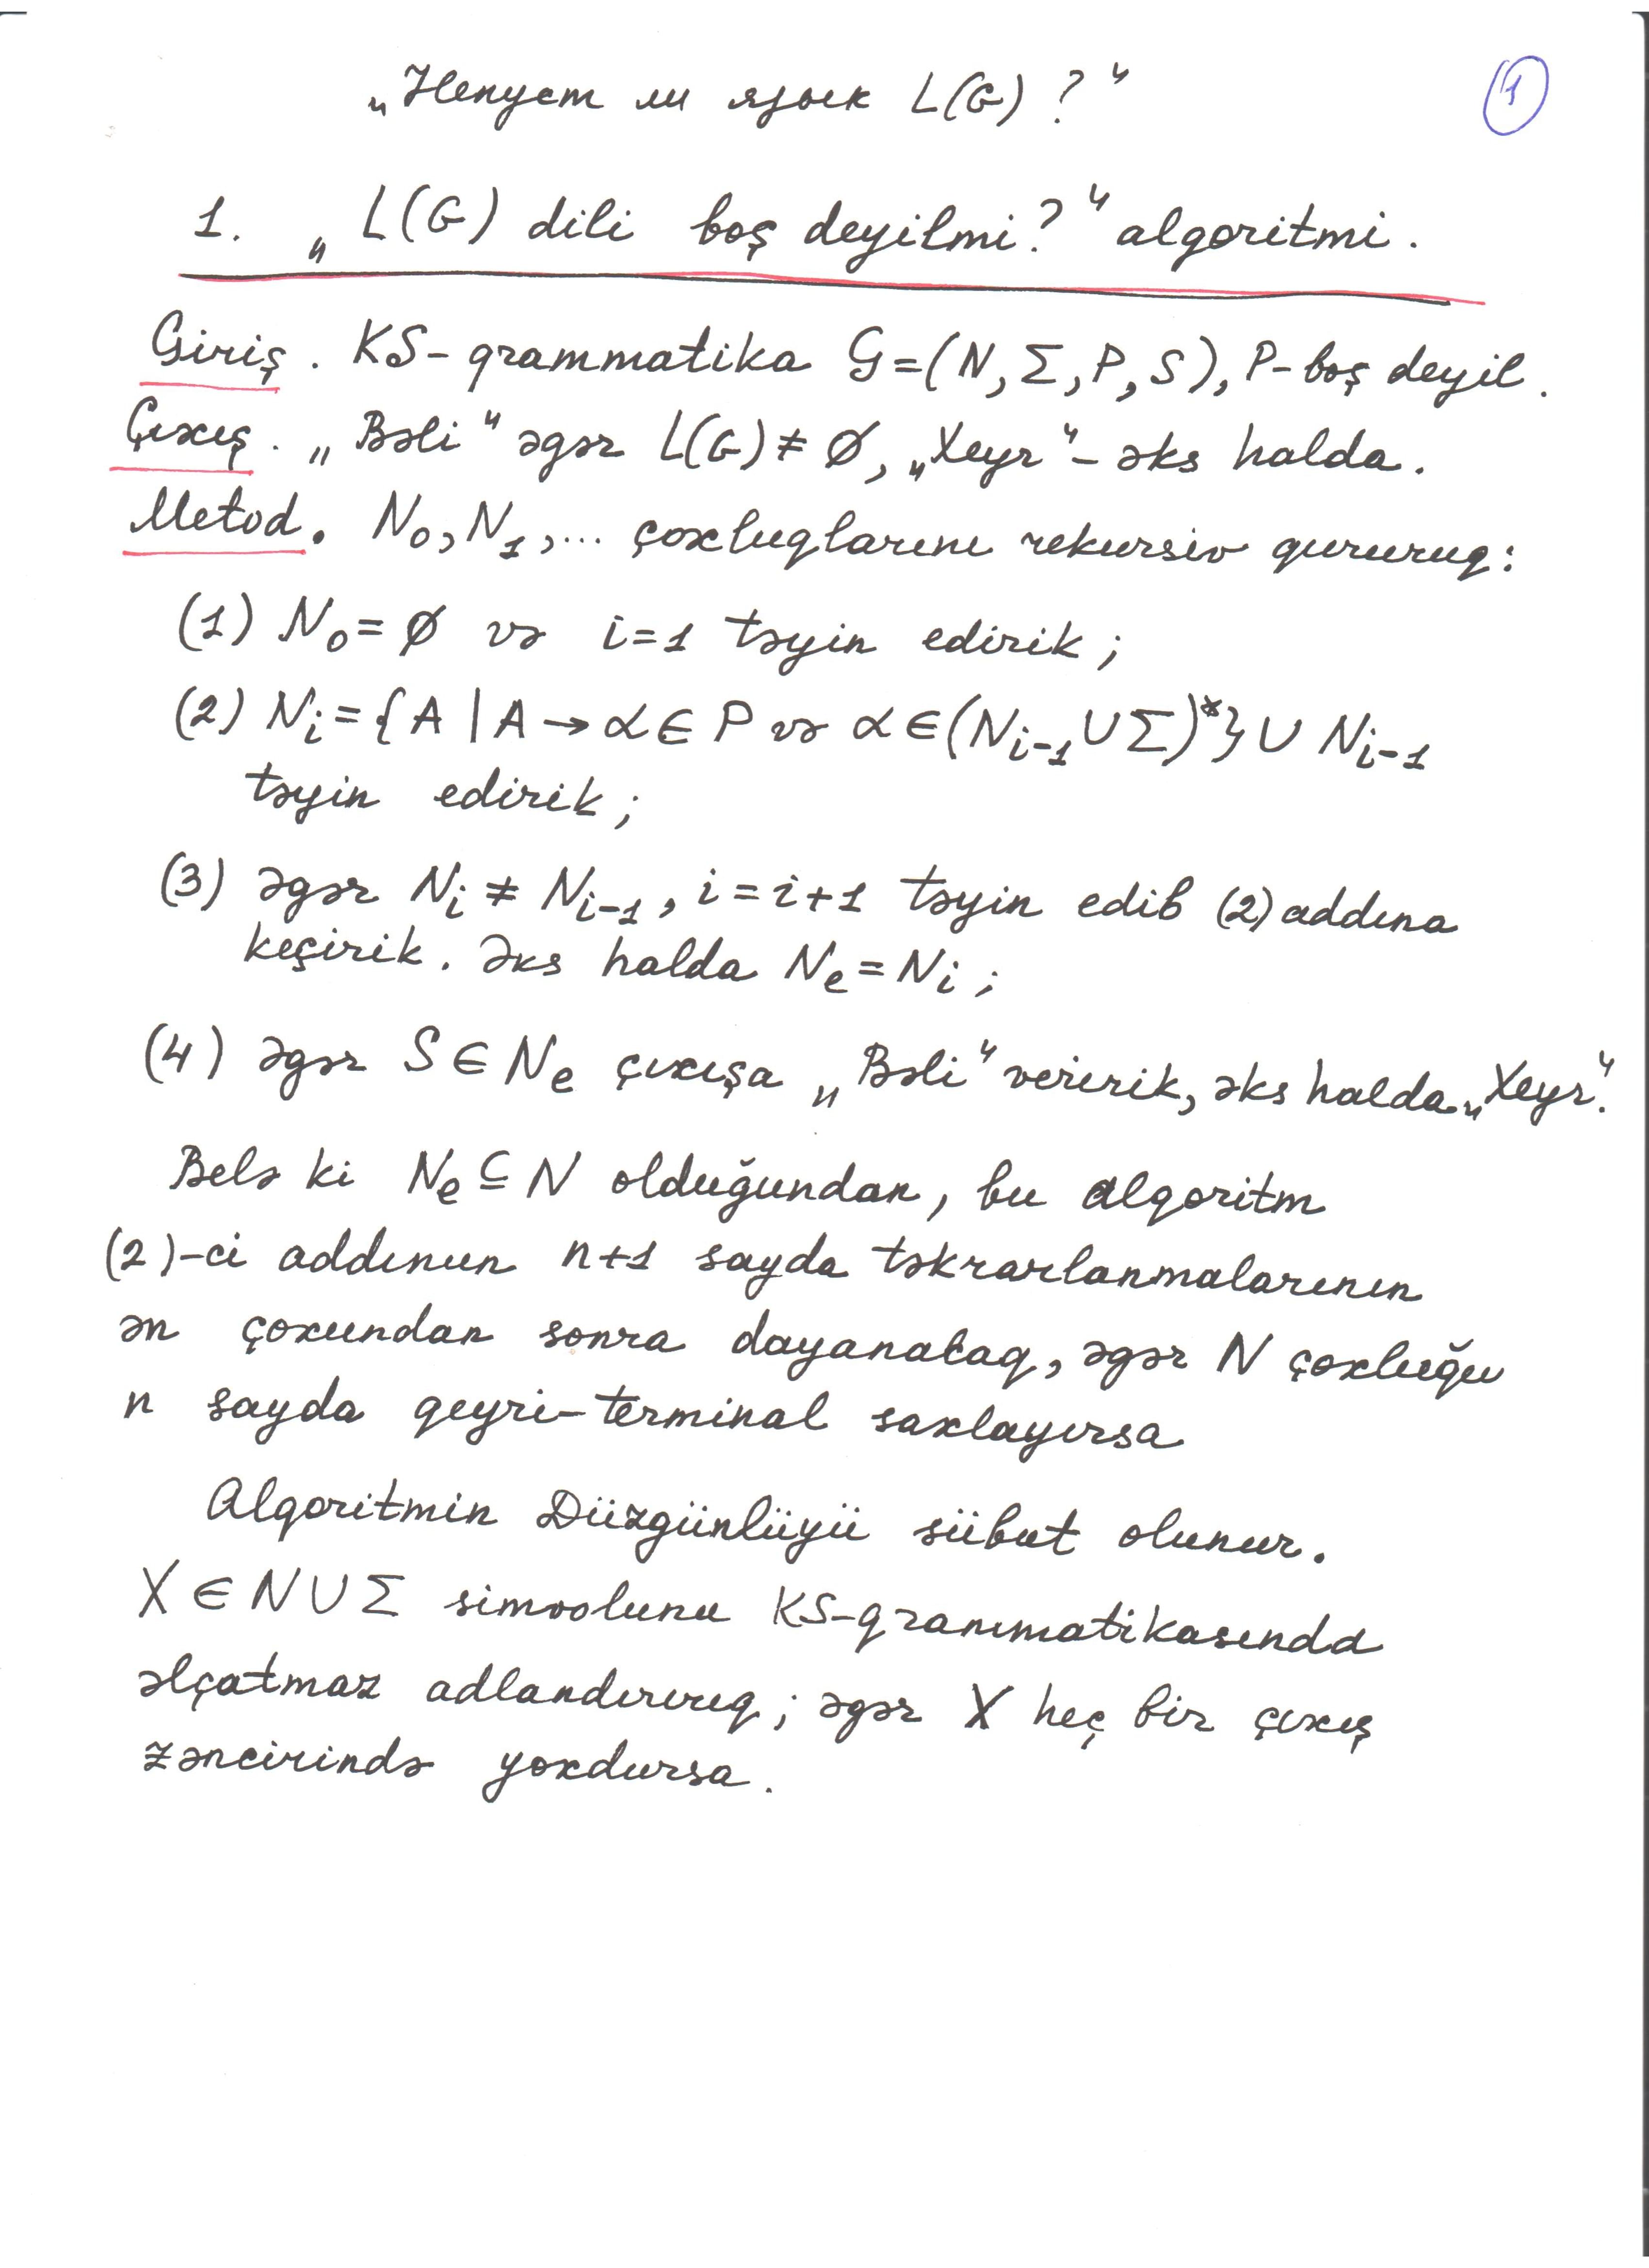 „Непуст ли язык L(G) ?“
1
1. „L(G) dili boş deyilmi?“ alqoritmi.
Giriş. KS-qrammatika G=(N,Σ,P,S), P-boş deyil.
Çıxış. „Bəli“ əgər L(G)≠∅, „Xeyr“- əks halda.
Metod. N₀,N₁,... çoxluqlarını rekursiv qururuq:
(1) N₀=∅ və i=1 təyin edirik;
(2) Nᵢ={A|A→α∈P və α∈(Nᵢ₋₁∪Σ)*}∪Nᵢ₋₁
təyin edirik;
(3) əgər Nᵢ≠Nᵢ₋₁, i=i+1 təyin edib (2) addına
keçirik. Əks halda Nₑ=Nᵢ;
(4) əgər S∈Nₑ çıxışa „Bəli“ veririk, əks halda „Xeyr“.
Belə ki Nₑ⊆N olduğundan, bu alqoritm
(2)-ci addının n+1 sayda təkrarlanmalarının
ən çoxundan sonra dayanacaq, əgər N çoxluğu
n sayda qeyri-terminal saxlayırsa
Alqoritmin Düzgünlüyü sübut olunur.
X∈N∪Σ simvolunu KS-qrammatikasında
əlçatmaz adlandırırıq; əgər X heç bir çıxış
zəncirində yoxdursa.